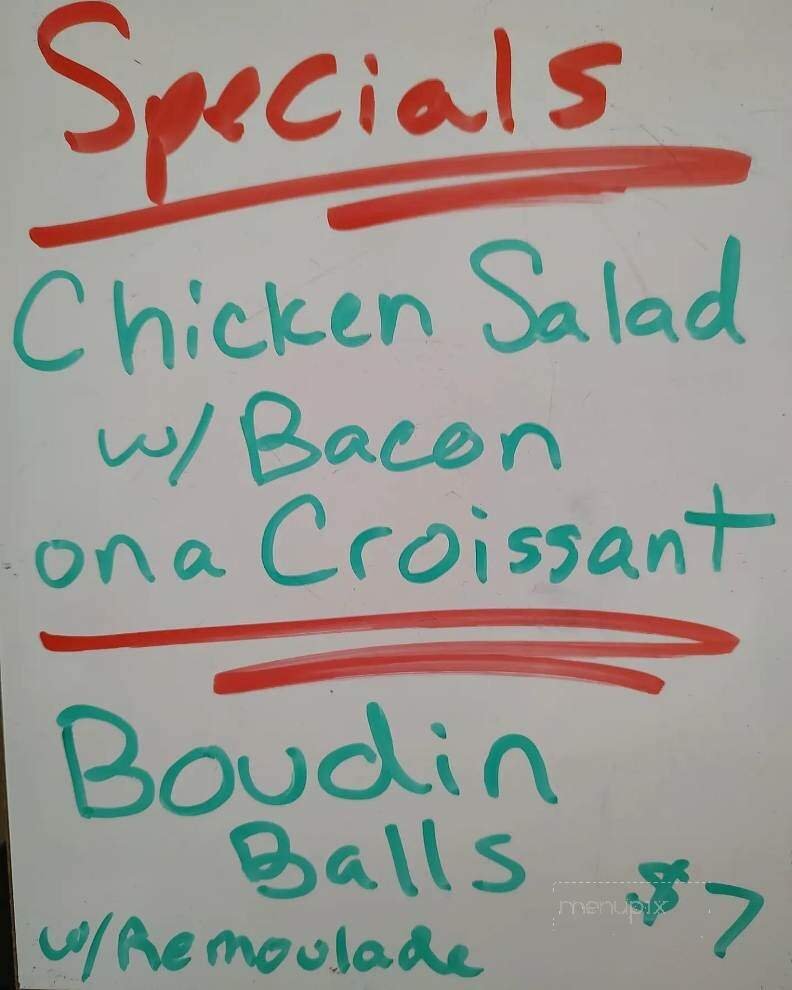 Specials
Chicken Salad
w/ Bacon
on a Croissant
Boudin
Balls
w/Remoulade $7
menupix